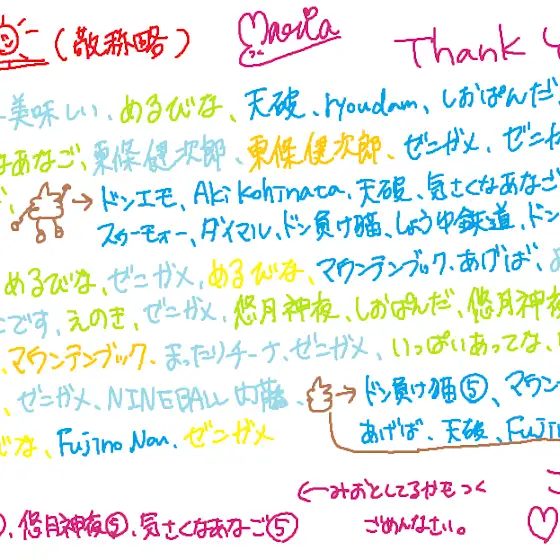 (敬称略) Maria Thank Y
ー美味しい、めるびな、天破、ryoudam、しおぱんだ
なあなご、東條健次郎、東條健次郎、ゼニガメ、ゼニガ
→ドンエモ、Aki Kohinata、天破、気さくなあなご
スゥーモォー、ダイマル、ドン負け猫、しょうゆ鉄道、ドン
めるびな、ゼニガメ、めるびな、マウンテンブック、あげぱ、
です、えのき、ゼニガメ、悠月神夜、しおぱんだ、悠月神夜
、マウンテンブック、まったりチーナ、ゼニガメ、いっぱいあってな、
、ゼニガメ、NINEBALL内藤、→ドン負け猫⑤、マウン
びな、Fujino Nau、ゼニガメ あげぱ、天破、Fujin
←みおとしてるかもっく
、悠月神夜⑤、気さくなあなご⑤ ごめんなさい。